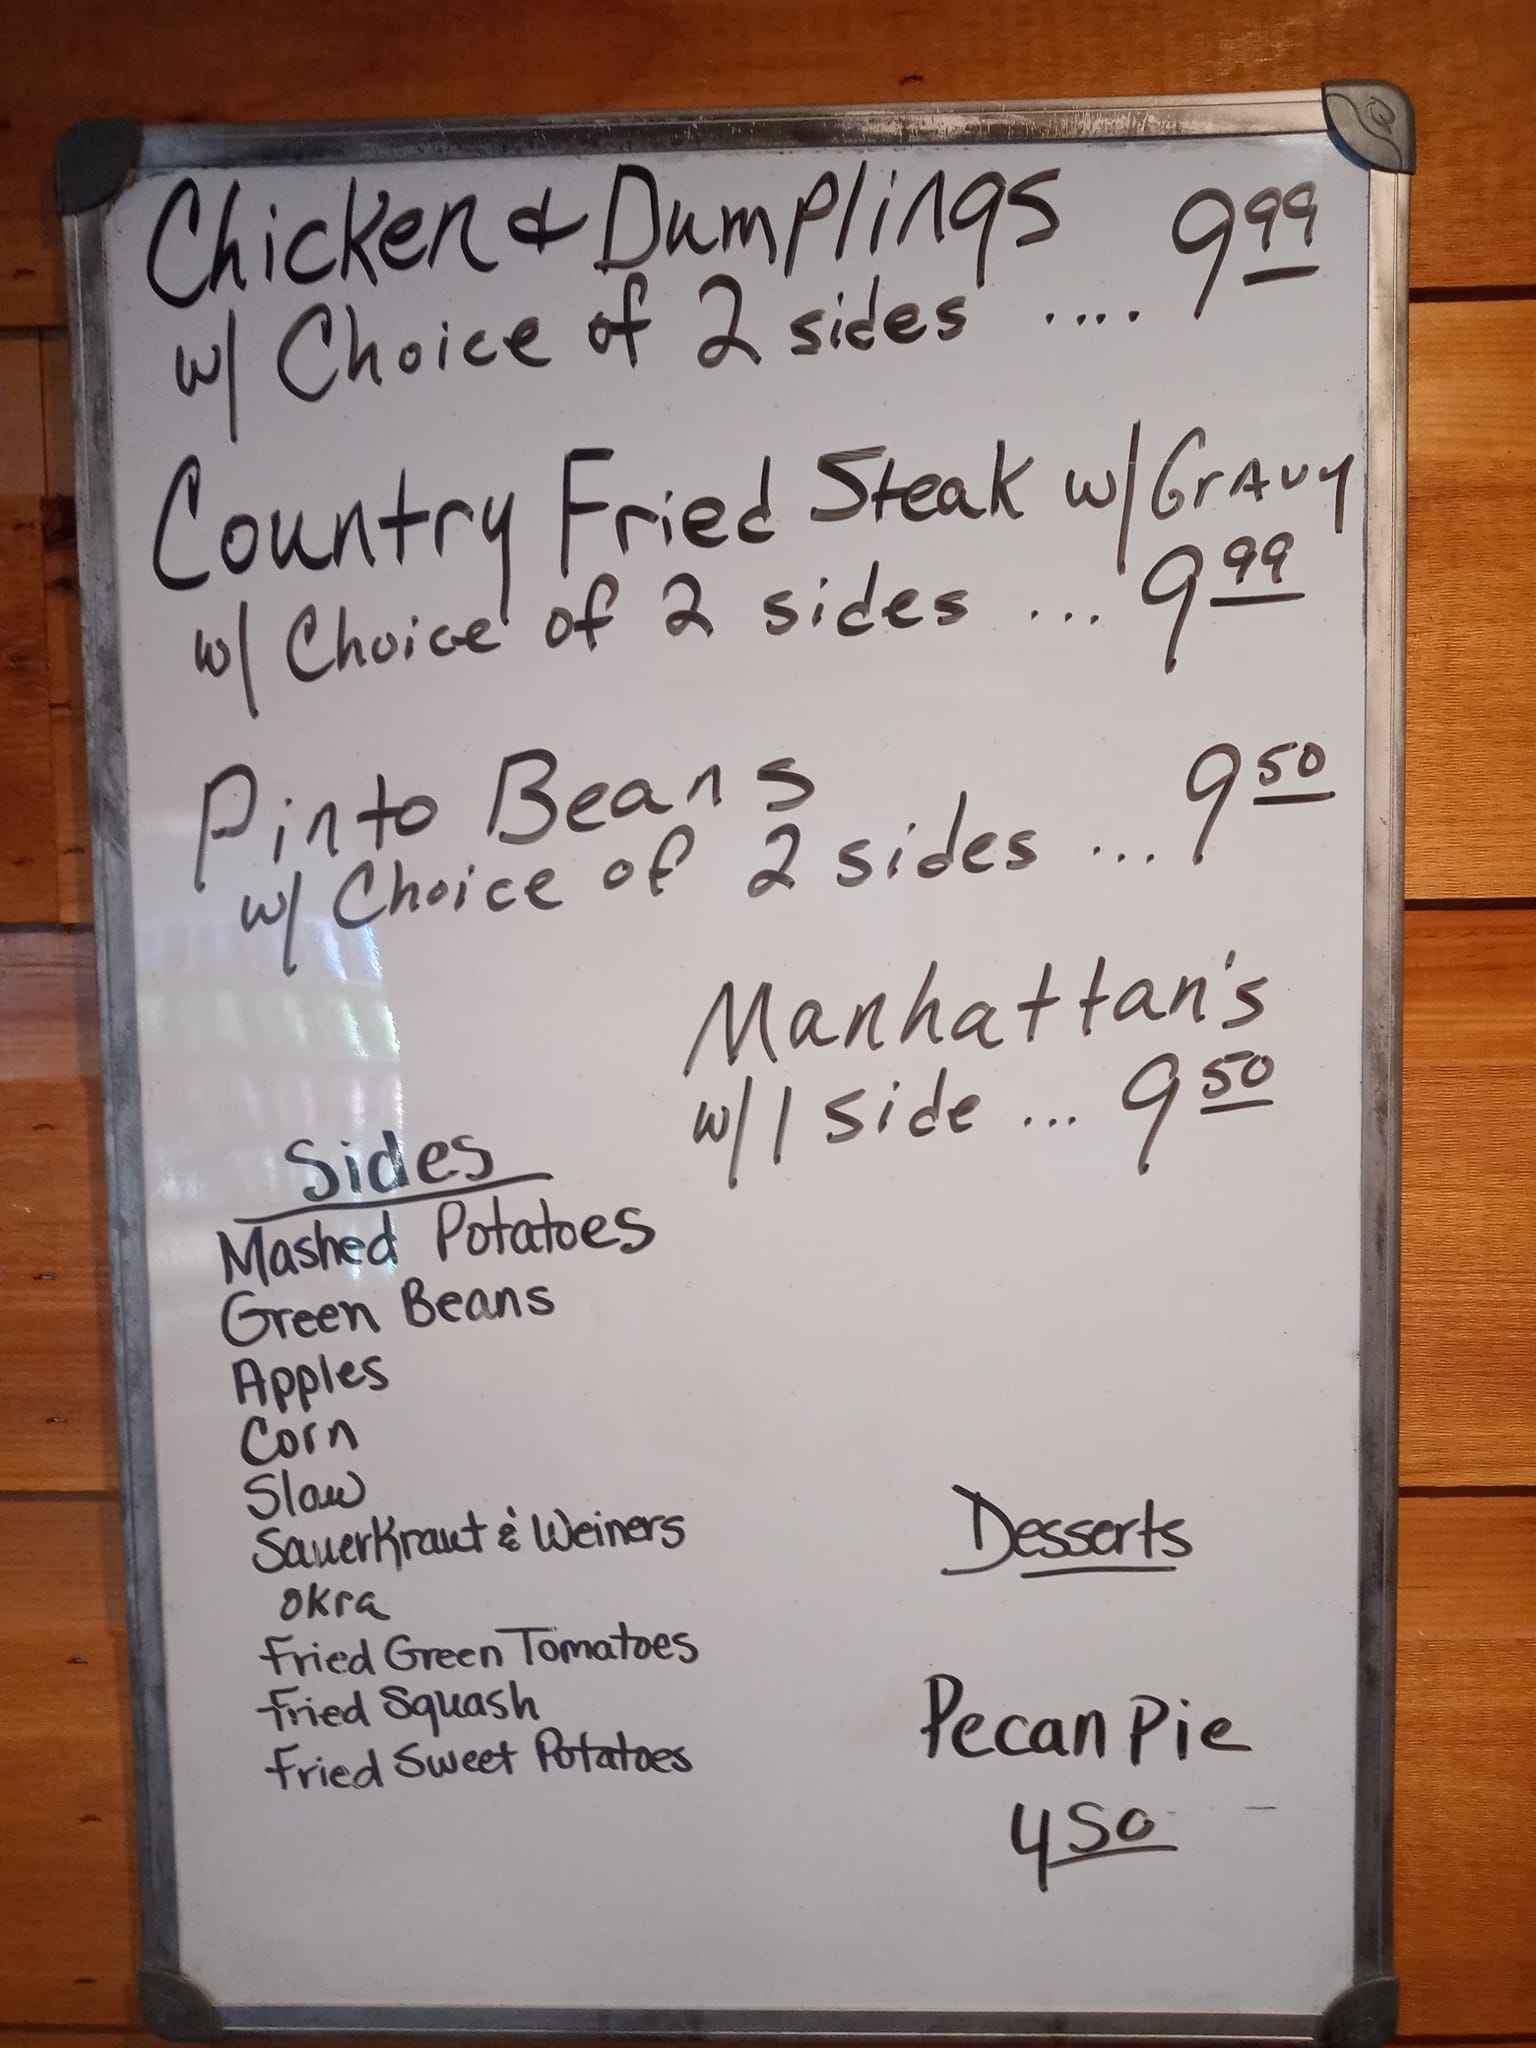 Chicken & Dumplings 9.99
w/ Choice of 2 sides ....
Country Fried Steak w/ Gravy
w/ Choice of 2 sides ... 9.99
Pinto Beans 9.50
w/ Choice of 2 sides ...
Manhattan's
w/ 1 side ... 9.50
Sides
Mashed Potatoes
Green Beans
Apples
Corn
Slaw
Sauerkraut & Weiners
Okra
Fried Green Tomatoes
Fried Squash
Fried Sweet Potatoes
Desserts
Pecan Pie
4.50